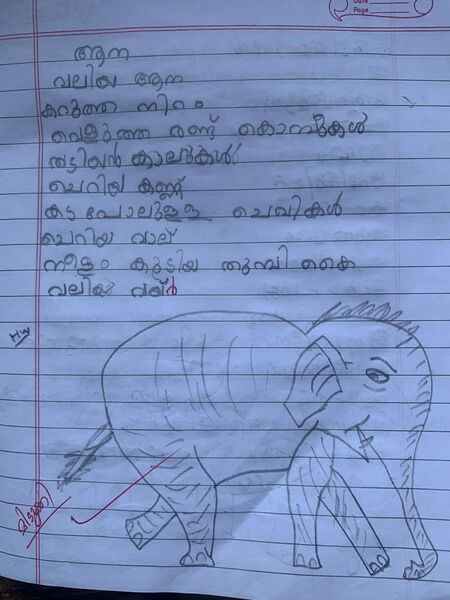 Date
Page
ആന
വലിയ ആന
കറുത്ത നിറം
വെളുത്ത രണ്ട് കൊമ്പുകൾ
തടിയൻ കാലുകൾ
ചെറിയ കണ്ണ്
കട പോലുള്ള ചെവികൾ
ചെറിയ വാല്
നീളം കൂടിയ തുമ്പി കൈ
വലിയ വയർ
H.W